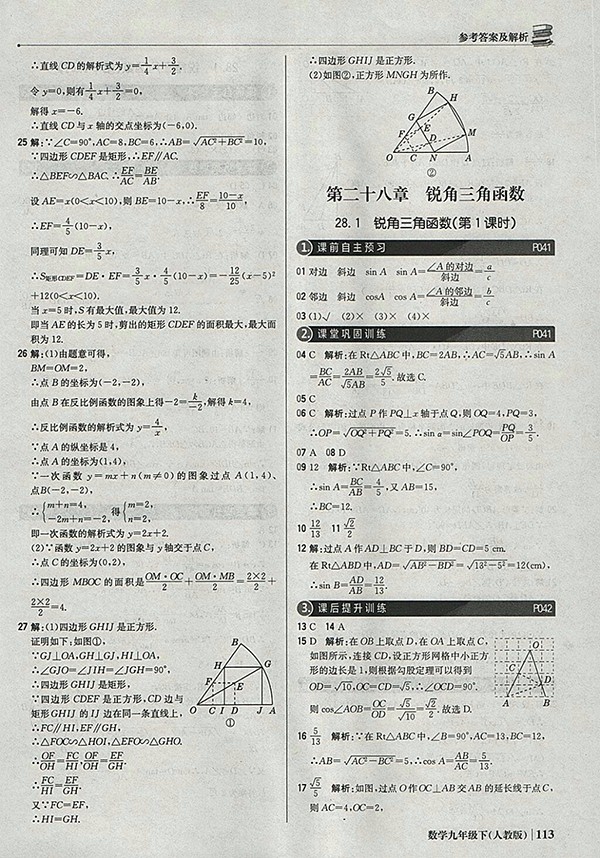 参考答案及解析
∴直线 CD 的解析式为 y=1/4 x+3/2.
令 y=0,则有 1/4 x+3/2=0,
解得 x=-6.
∴直线 CD 与 x 轴的交点坐标为(-6,0).
25 解:∵∠C=90°,AC=8,BC=6,∴AB=√(AC²+BC²)=10,
∵四边形 CDEF 是矩形,∴EF∥AC.
∴△BEF∽△BAC. ∴EF/AC=BE/AB.
设 AE=x(0<x<10),则 BE=10-x,∴EF/8=(10-x)/10,
∴EF=4/5(10-x),
同理可知 DE=3/5 x,
∴S矩形CDEF=DE·EF=3/5 x·4/5(10-x)=-12/25(x-5)²
+12(0<x<10).
当 x=5 时,S 有最大值,最大值为 12.
即当 AE 的长为 5 时,剪出的矩形 CDEF 的面积最大,最大面
积为 12.
26 解:(1)由题意可得,
BM=OM=2,
∴点 B 的坐标为(-2,-2),
由点 B 在反比例函数的图象上得-2=k/-2,解得 k=4,
∴反比例函数的解析式为 y=4/x,
∵点 A 的纵坐标是 4,
∴点 A 的坐标为(1,4),
∵一次函数 y=mx+n(m≠0)的图象过点 A(1,4)、
点B(-2,-2),
∴{m+n=4, -2m+n=-2, 得{m=2, n=2,
即一次函数的解析式为 y=2x+2.
(2)∵函数 y=2x+2 的图象与 y 轴交于点 C,
∴点 C 的坐标为(0,2),
∴四边形 MBOC 的面积是 OM·OC/2+OM·MB/2=2×2/2+
2×2/2=4.
27 解:(1)四边形 GHIJ 是正方形.
证明如下:如图①,
∵GJ⊥OA,GH⊥GJ,HI⊥OA,
∴∠GJO=∠JIH=∠JGH=90°,
∴四边形 GHIJ 是矩形,
∵四边形 CDEF 是正方形,CD 边与
矩形 GHIJ 的 IJ 边在同一条直线上,
∴FC∥HI,EF∥GH,
∴△FOC∽△HOI,△EFO∽△GHO.
∴OF/OH=FC/HI,OF/OH=EF/GH.
∴FC/HI=EF/GH.
又∵FC=EF,
∴HI=GH.
B
H
G
F
E
O
C
I
D
J
A
①
∴四边形 GHIJ 是正方形.
(2)如图②,正方形 MNGH 为所作.
B
H
G
F
E
D
M
O
C
N
A
②
第二十八章 锐角三角函数
28.1 锐角三角函数(第 1 课时)
1. 课前自主预习 P041
01 对边 斜边 sin A sin A=∠A的对边/斜边=a/c
02 邻边 斜边 cosA cos A=∠A的邻边/斜边=b/c
03 (1)√ (2)× (3)× (4)×
2. 课堂巩固训练 P041
04 C 解析:在 Rt△ABC 中,BC=2AB,∴AC=√5AB,∴sin A
=BC/AC=2AB/√5AB=2√5/5.故选 C.
05 C
06 C 解析:过点 P 作 PQ⊥x 轴于点 Q,则 OQ=4,PQ=3,
∴OP=√(OQ²+PQ²)=5. ∴sin α=sin∠POQ=PQ/OP=3/5.
07 A 08 D
09 12 解析:∵Rt△ABC 中,∠C=90°,
∴sin A=BC/AB=4/5,又 AB=15,
∴BC=12.
10 12/13 11 √2/2
12 解:过点 A 作 AD⊥BC 于 D,则 BD=CD=5 cm.
在 Rt△ABD 中,AD=√(AB²-BD²)=√(13²-5²)=12(cm),
∴sin B=AD/AB=12/13.
3. 课后提升训练 P042
13 C 14 A
15 D 解析:在 OB 上取点 D,在 OA 上取点 C,
如图所示,连接 CD,设正方形网格中小正方
形的边长是 1,则根据勾股定理可以得到
OD=√10,OC=CD=√5,∴∠OCD=90°.
则 cos∠AOB=OC/OD=√5/√10=√2/2.故选 D.
O
C
D
A
B
16 5/13 解析:∵在 Rt△ABC 中,∠B=90°,AC=13,BC=12,
∴AB=√(AC²-BC²)=5,∴cosA=AB/AC=5/13.
17 √5/5 解析:如图,过点 O 作 OC⊥AB 交 AB 的延长线于点 C,
则 AC=4,OC=2,
数学九年级下(人教版) 113